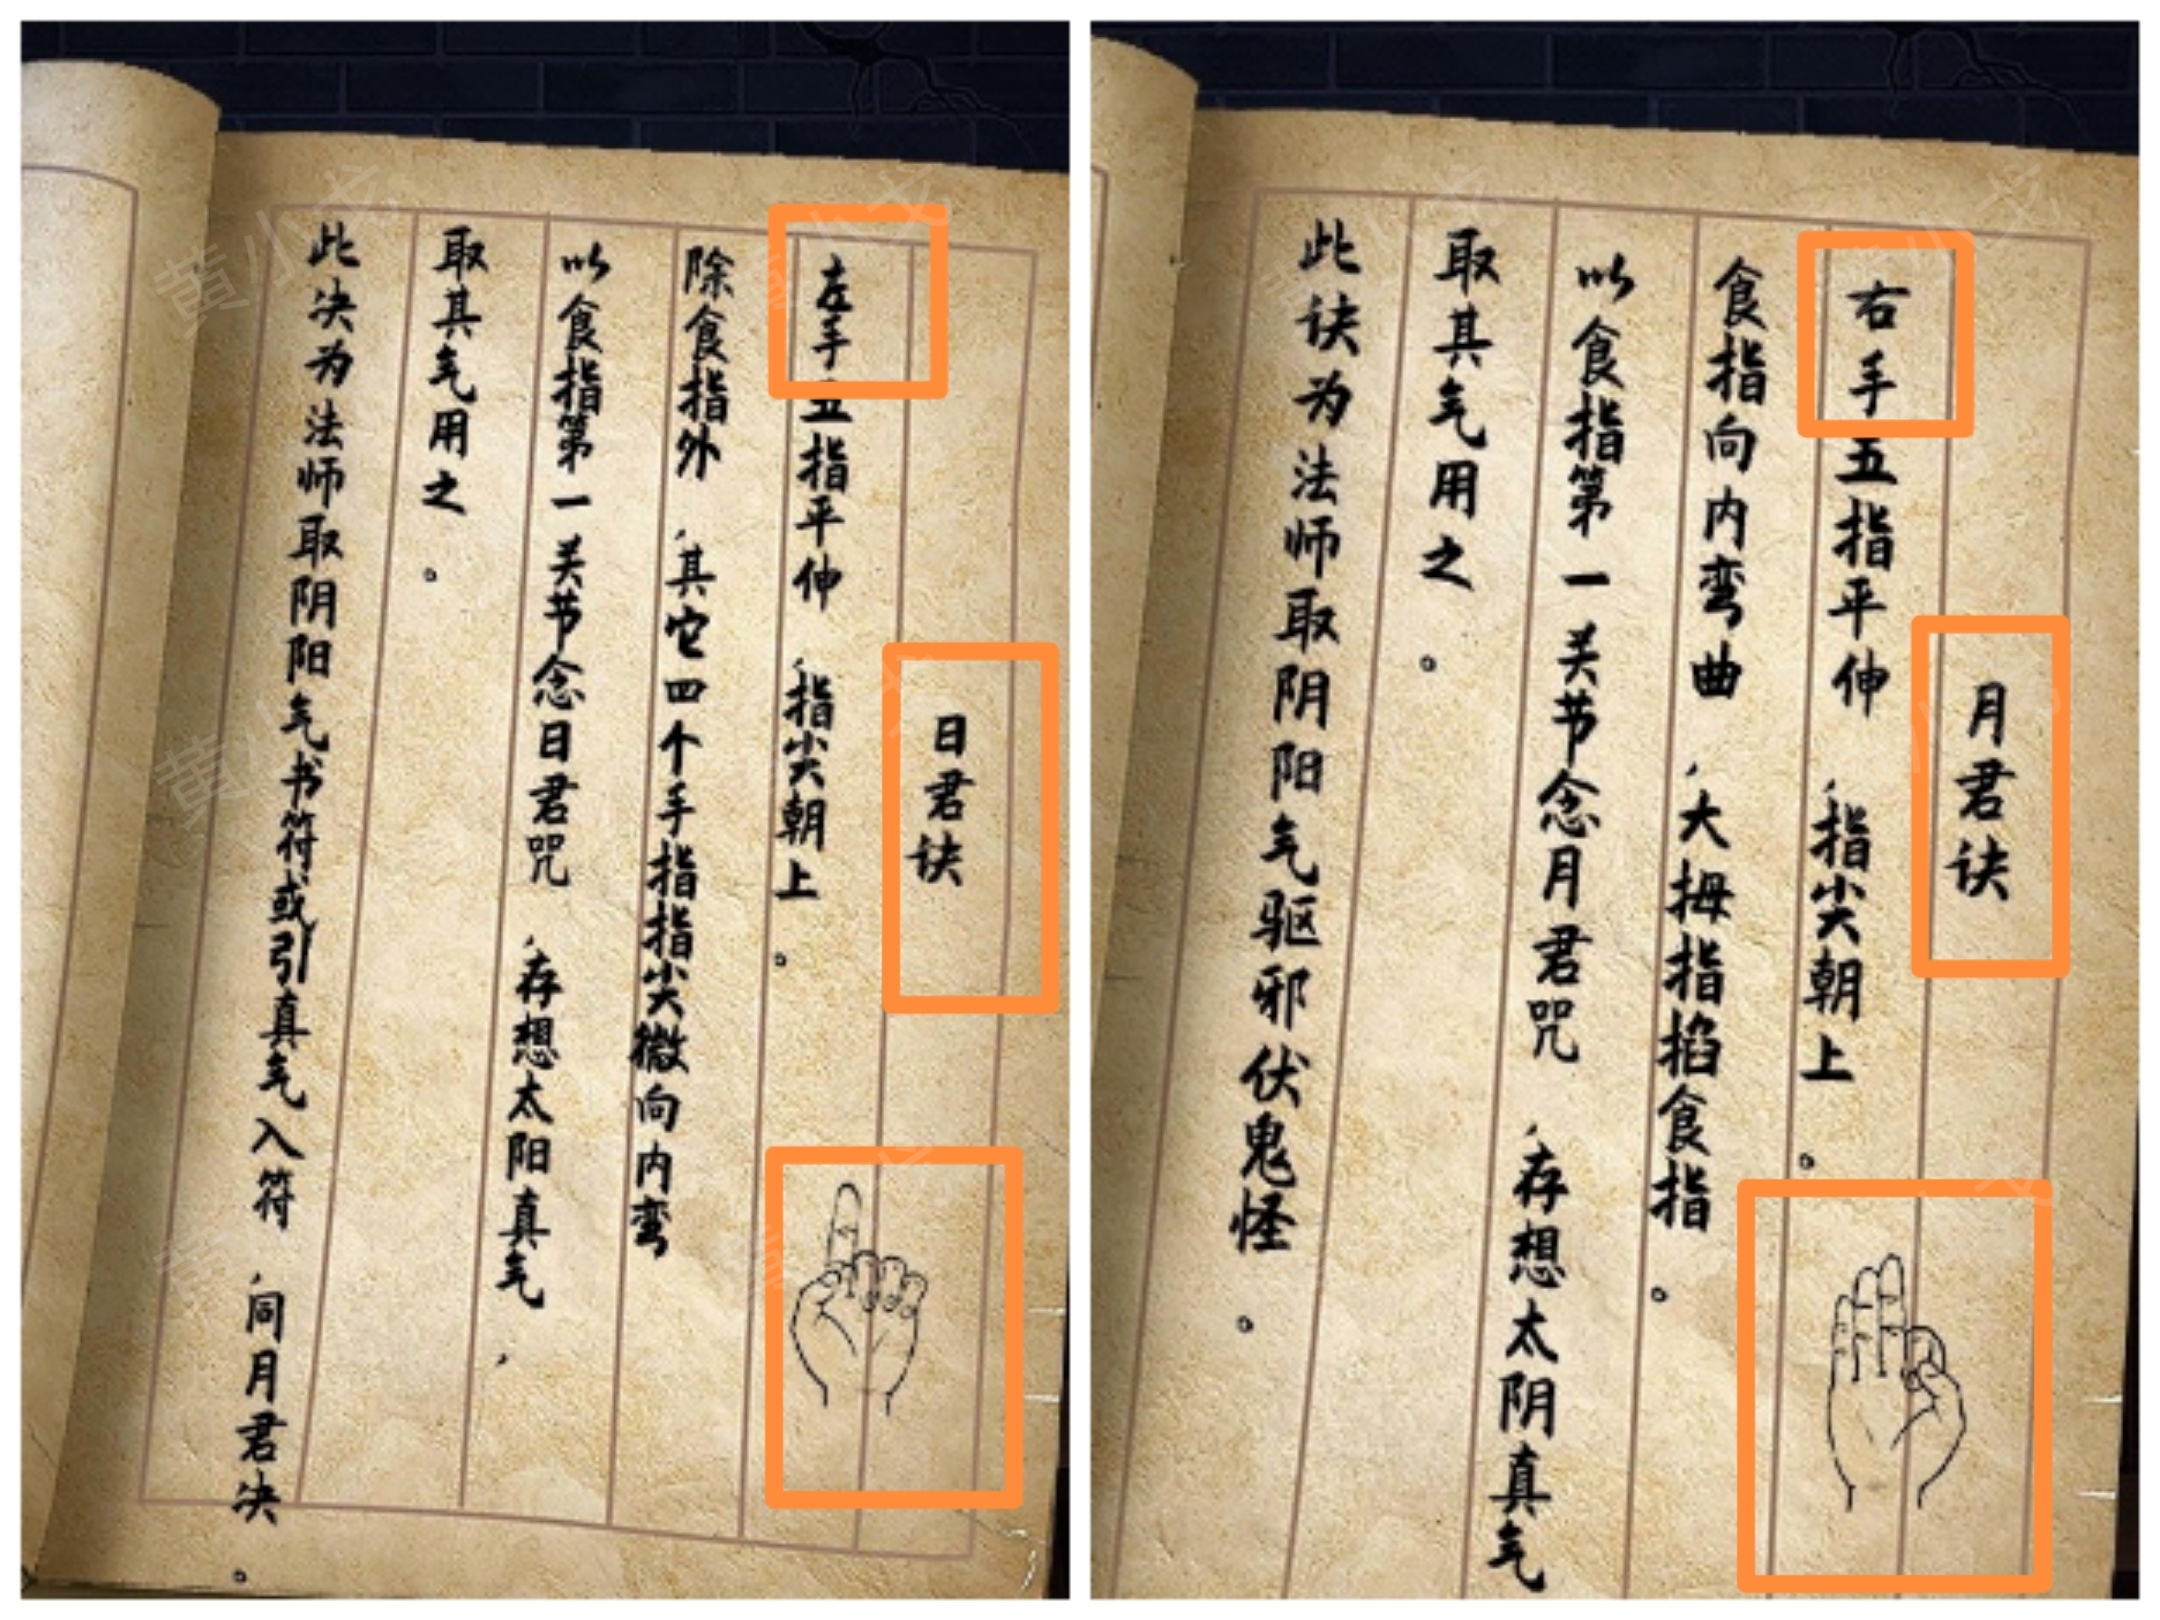 日君诀
左手五指平伸，指尖朝上。
除食指外，其它四个手指指尖微向内弯
以食指第一关节念日君咒，存想太阳真气，
取其气用之。
此决为法师取阴阳气书符或引真气入符，同月君决。
月君诀
右手五指平伸，指尖朝上。
食指向内弯曲，大拇指掐食指。
以食指第一关节念月君咒，存想太阴真气
取其气用之。
此诀为法师取阴阳气驱邪伏鬼怪。
黄小戈